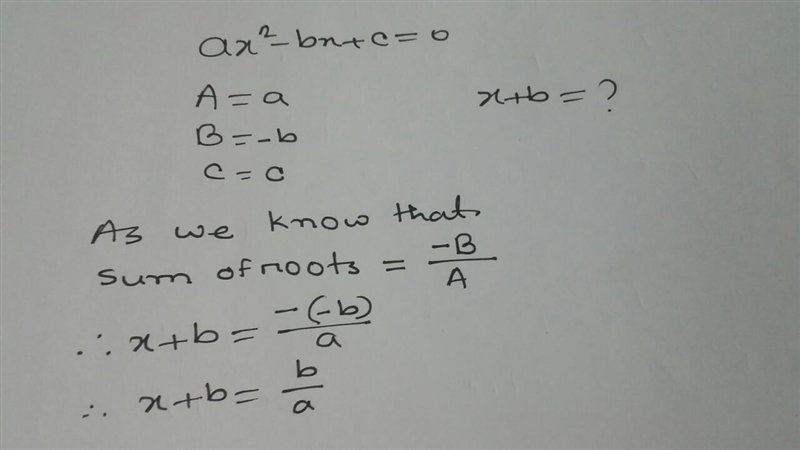 ax²-bx+c=0
A=a
x+b=?
B=-b
C=c
As we know that
sum of roots = -B/A
∴ x+b= -(-b)/a
∴ x+b= b/a